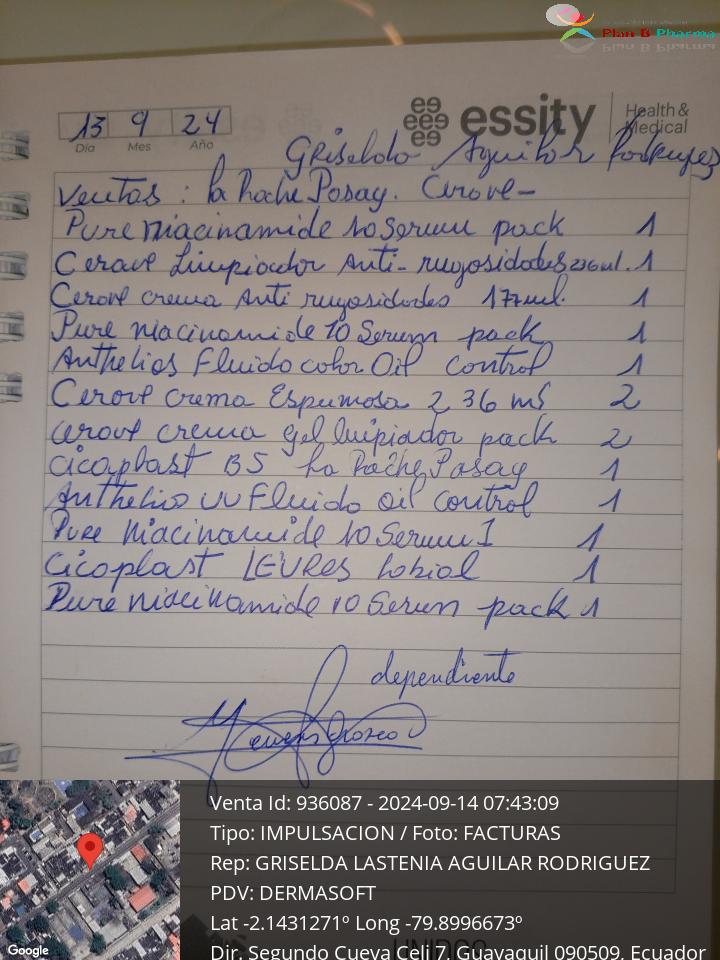 Plan B Pharma
13 9 24
Día Mes Año
essity Health & Medical
Griselda Aguilar Rodriguez
Ventas : La Roche Posay. Cerave-
Pure niacinamide 10 Serum pack 1
Cerave Limpiador Anti-rugosidades 236ml. 1
Cerave crema Anti rugosidades 177ml. 1
Pure niacinamide 10 Serum pack 1
Anthelios Fluido color Oil control 1
Cerave crema Espumosa 236 ml 2
Cerave crema gel limpiador pack 2
Cicaplast B5 La Roche Posay 1
Anthelios UV Fluido oil control 1
Pure Niacinamide 10 Serum 1 1
Cicaplast LEVRES Labial 1
Pure niacinamide 10 Serum pack 1
dependiente
Venta Id: 936087 - 2024-09-14 07:43:09
Tipo: IMPULSACION / Foto: FACTURAS
Rep: GRISELDA LASTENIA AGUILAR RODRIGUEZ
PDV: DERMASOFT
Lat -2.1431271º Long -79.8996673º
Dir. Segundo Cueva Celi 7, Guayaquil 090509, Ecuador
Google